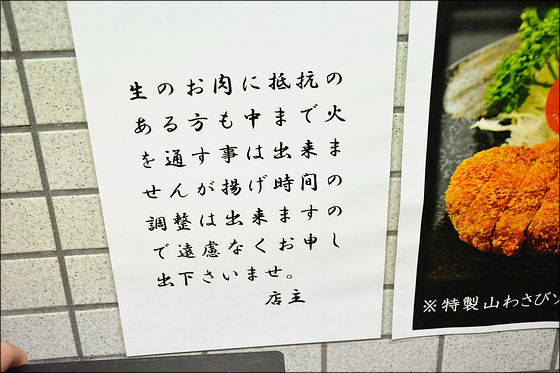 生のお肉に抵抗の
ある方も中まで火
を通す事は出来ま
せんが揚げ時間の
調整は出来ますの
で遠慮なくお申し
出下さいませ。
店主
※特製山わさび